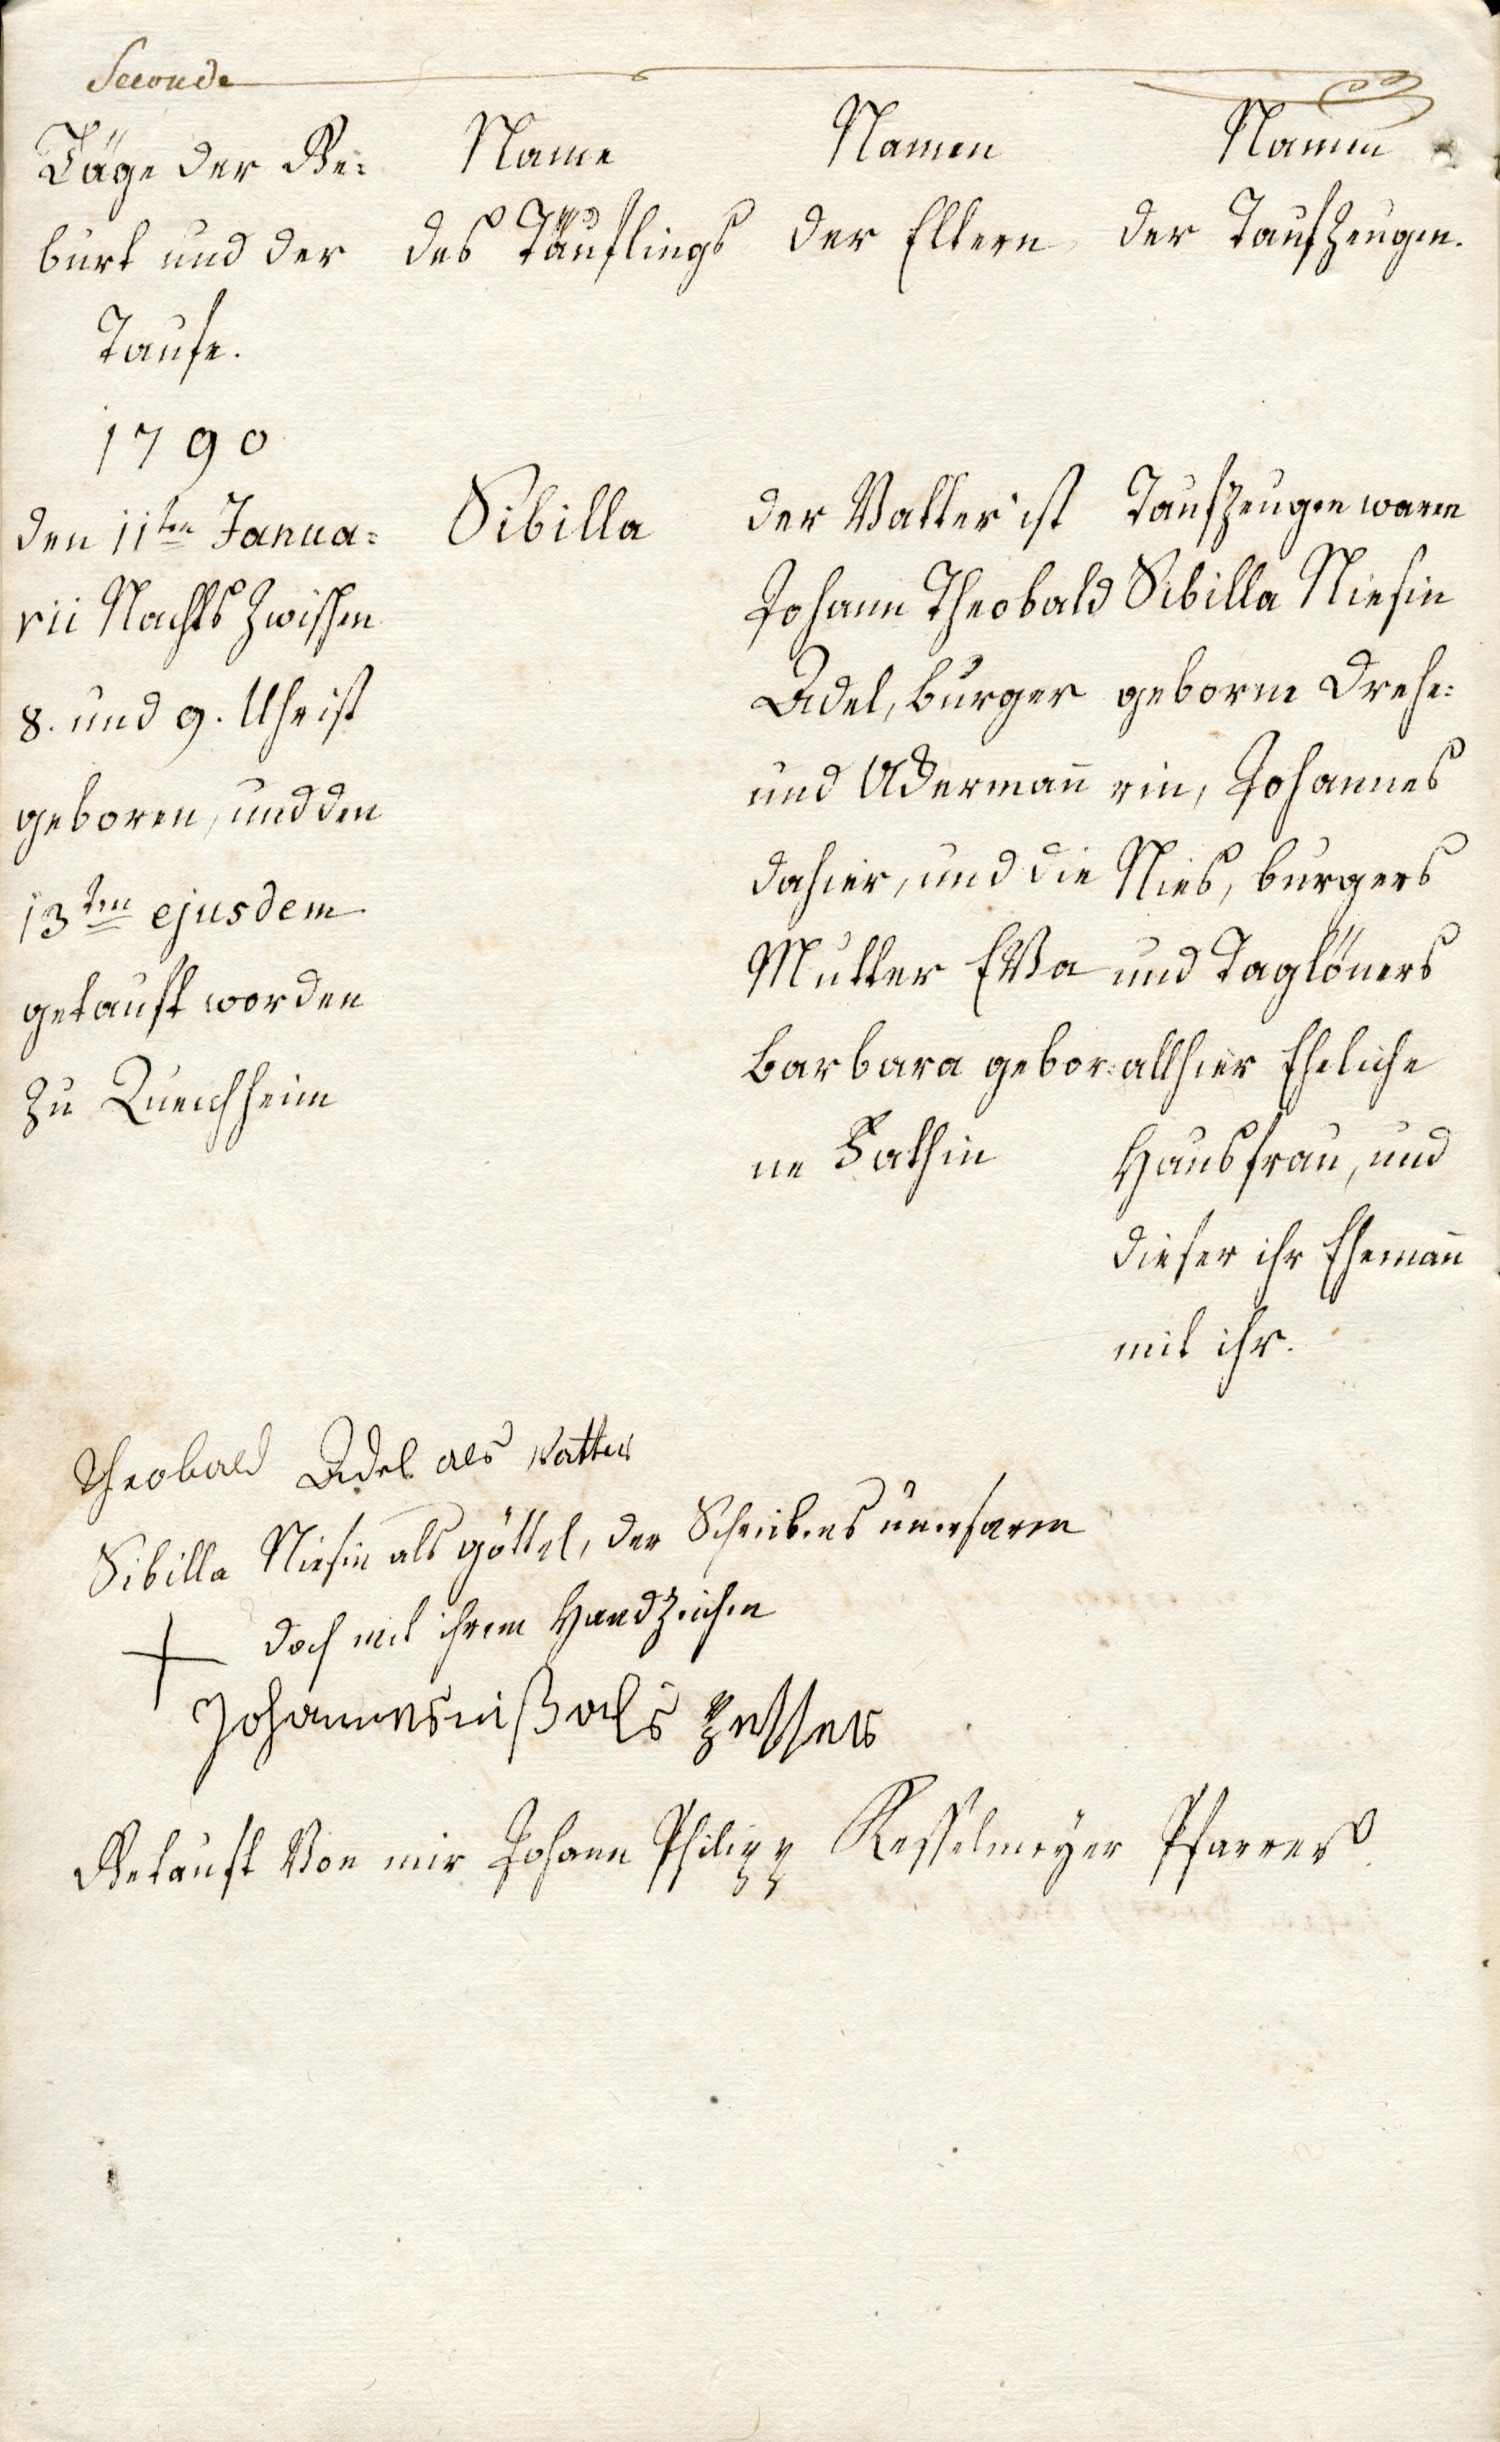 Seconde
Täge der Ge:
burt und der
Taufe.
Name
des Täuflings
Namen
der Eltern
Namen
der Taufzeugen.
1790
den 11ten Janua:
rii Nachts zwischen
8. und 9. Uhr ist
geboren, und den
13ten ejusdem
getauft worden
zu Queichheim
Sibilla
der Vatter ist
Johann Theobald
Adel, burger
und Akermañ
dahier, und die
Mutter EVa
barbara gebor:
ne Fathin
Taufzeugen waren
Sibilla Niesin
geborne Drehe:
rin, Johannes
Nies, burgers
und Taglöners
allhier Eheliche
Hausfrau, und
dieser ihr Ehemañ
mit ihr.
Theobald Adel als Vatter
Sibilla Niesin als göttel, der Schreibens unerfaren
doch mit ihrem Handzeichen
Johannes niß als
Getauft Von mir Johann Philipp Kesselmeyer Pfarrer